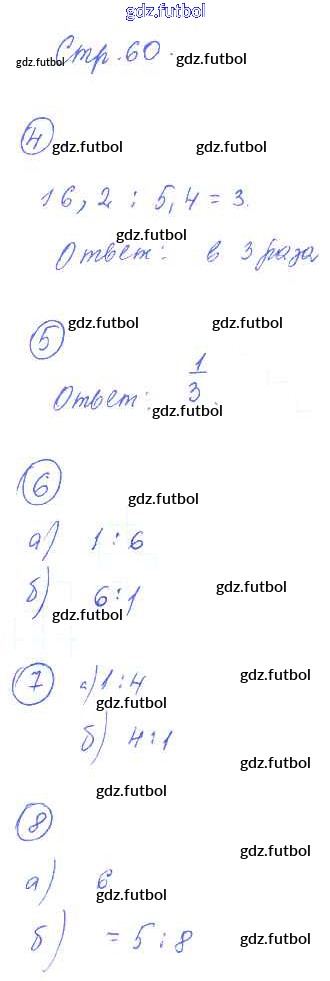 gdz.futbol
Стр. 60.
gdz.futbol gdz.futbol
4
gdz.futbol gdz.futbol
16,2 : 5,4 = 3.
gdz.futbol
Ответ: в 3 раза
5
gdz.futbol gdz.futbol
Ответ: 1/3.
gdz.futbol
6
gdz.futbol
а) 1 : 6
gdz.futbol
б) 6 : 1
gdz.futbol
7 а) 1 : 4
gdz.futbol
gdz.futbol
б) 4 : 1
gdz.futbol
gdz.futbol
8
gdz.futbol
а) 6
gdz.futbol
б) = 5 : 8
gdz.futbol